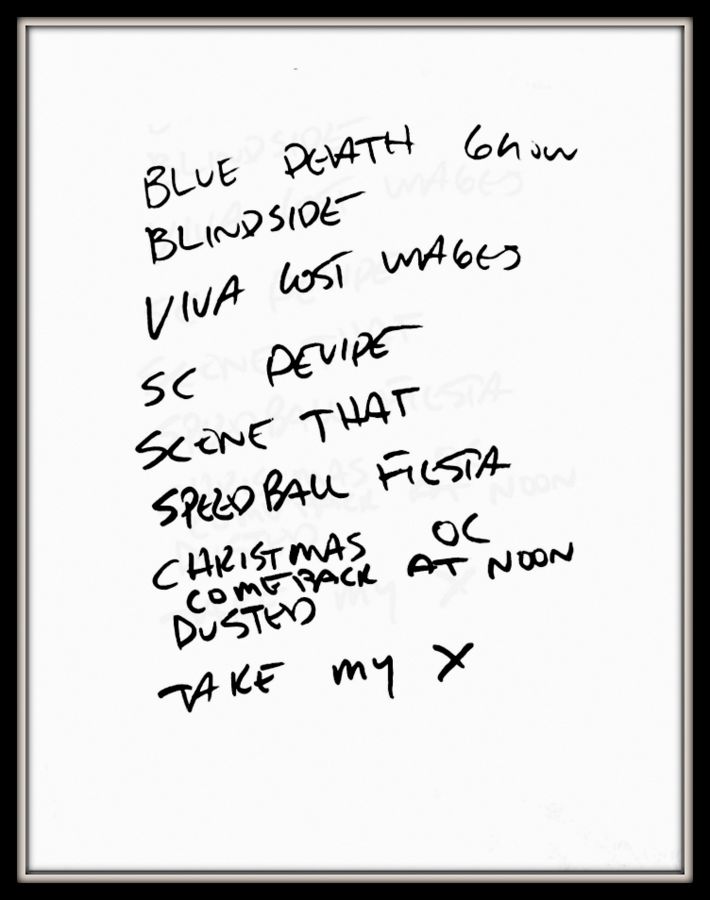 BLUE DEATH
BLINDSIDE
VIVA LOST WAGES
SC DEVIDE
SCENE THAT
SPEEDBALL FIESTA
CHRISTMAS OC
COMEBACK AT NOON
DUSTED
TAKE my X